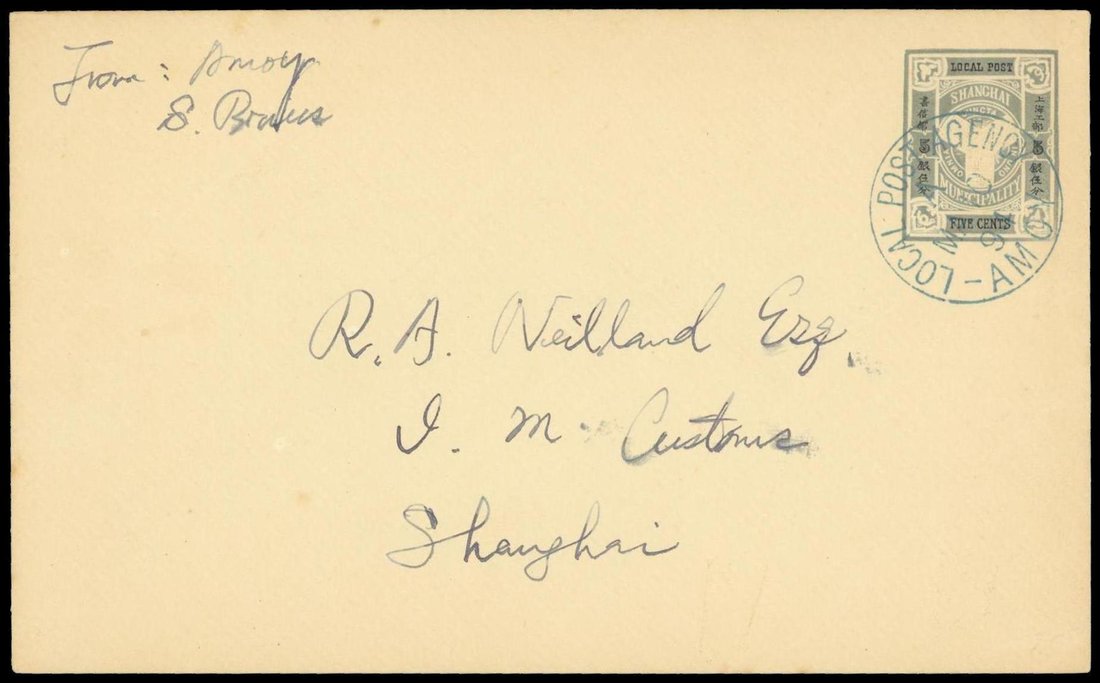 From: Amoy
S. Braus
LOCAL POST
SHANGHAI
MUNICIPALITY
FIVE CENTS
上海工部
銀伍分
LOCAL POST AGENCY - AMOY
R. A. Neilland Esq.
I. M Customs
Shanghai